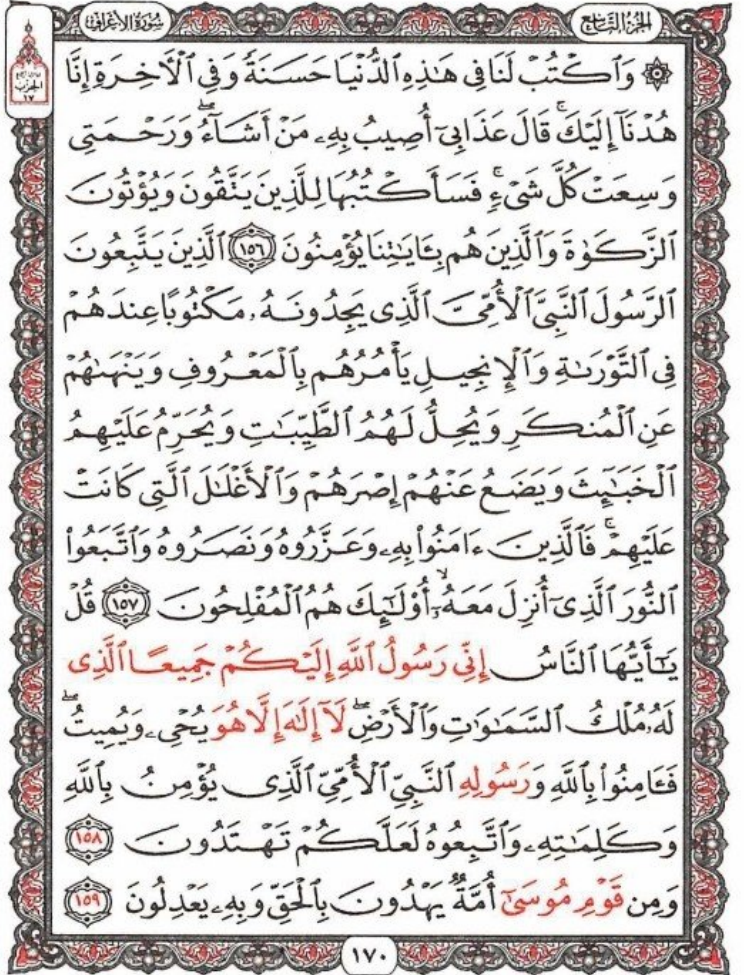 الجزء التاسع
سورة الأعراف
۞ وَٱكۡتُبۡ لَنَا فِي هَٰذِهِ ٱلدُّنۡيَا حَسَنَةٗ وَفِي ٱلۡأٓخِرَةِ إِنَّا
هُدۡنَآ إِلَيۡكَۚ قَالَ عَذَابِيٓ أُصِيبُ بِهِۦ مَنۡ أَشَآءُۖ وَرَحۡمَتِي
وَسِعَتۡ كُلَّ شَيۡءٖۚ فَسَأَكۡتُبُهَا لِلَّذِينَ يَتَّقُونَ وَيُؤۡتُونَ
ٱلزَّكَوٰةَ وَٱلَّذِينَ هُم بِـَٔايَٰتِنَا يُؤۡمِنُونَ ١٥٦ ٱلَّذِينَ يَتَّبِعُونَ
ٱلرَّسُولَ ٱلنَّبِيَّ ٱلۡأُمِّيَّ ٱلَّذِي يَجِدُونَهُۥ مَكۡتُوبًا عِندَهُمۡ
فِي ٱلتَّوۡرَىٰةِ وَٱلۡإِنجِيلِ يَأۡمُرُهُم بِٱلۡمَعۡرُوفِ وَيَنۡهَىٰهُمۡ
عَنِ ٱلۡمُنكَرِ وَيُحِلُّ لَهُمُ ٱلطَّيِّبَٰتِ وَيُحَرِّمُ عَلَيۡهِمُ
ٱلۡخَبَٰٓئِثَ وَيَضَعُ عَنۡهُمۡ إِصۡرَهُمۡ وَٱلۡأَغۡلَٰلَ ٱلَّتِي كَانَتۡ
عَلَيۡهِمۡۚ فَٱلَّذِينَ ءَامَنُواْ بِهِۦ وَعَزَّرُوهُ وَنَصَرُوهُ وَٱتَّبَعُواْ
ٱلنُّورَ ٱلَّذِيٓ أُنزِلَ مَعَهُۥٓۙ أُوْلَٰٓئِكَ هُمُ ٱلۡمُفۡلِحُونَ ١٥٧ قُلۡ
يَٰٓأَيُّهَا ٱلنَّاسُ إِنِّي رَسُولُ ٱللَّهِ إِلَيۡكُمۡ جَمِيعًا ٱلَّذِي
لَهُۥ مُلۡكُ ٱلسَّمَٰوَٰتِ وَٱلۡأَرۡضِۖ لَآ إِلَٰهَ إِلَّا هُوَ يُحۡيِۦ وَيُمِيتُۖ
فَـَٔامِنُواْ بِٱللَّهِ وَرَسُولِهِ ٱلنَّبِيِّ ٱلۡأُمِّيِّ ٱلَّذِي يُؤۡمِنُ بِٱللَّهِ
وَكَلِمَٰتِهِۦ وَٱتَّبِعُوهُ لَعَلَّكُمۡ تَهۡتَدُونَ ١٥٨
وَمِن قَوۡمِ مُوسَىٰٓ أُمَّةٞ يَهۡدُونَ بِٱلۡحَقِّ وَبِهِۦ يَعۡدِلُونَ ١٥٩
١٧٠
الحزب
١٧